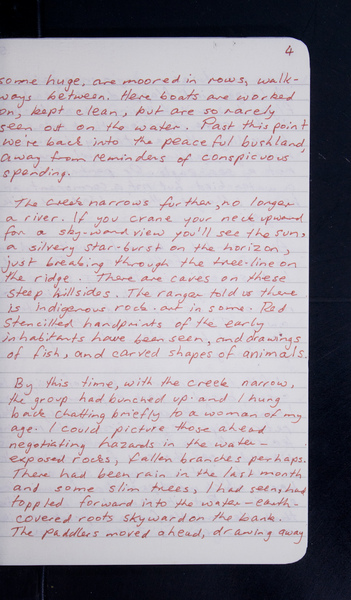 4
some huge, are moored in rows, walk-
ways between. Here boats are worked
on, kept clean, but are so rarely
seen out on the water. Past this point
we're back into the peaceful bushland,
away from reminders of conspicuous
spending.
The creek narrows further, no longer
a river. If you crane your neck upward
for a sky-ward view you'll see the sun,
a silvery star-burst on the horizon,
just breaking through the tree-line on
the ridge. There are caves on these
steep hillsides. The ranger told us there
is indigenous rock-art in some. Red
stencilled handprints of the early
inhabitants have been seen, and drawings
of fish, and carved shapes of animals.
By this time, with the creek narrow,
the group had bunched up and I hung
back chatting briefly to a woman of my
age. I could picture those ahead
negotiating hazards in the water—
exposed rocks, fallen branches perhaps.
There had been rain in the last month
and some slim trees, I had seen, had
toppled forward into the water—earth-
covered roots skyward on the bank.
The paddlers moved ahead, drawing away